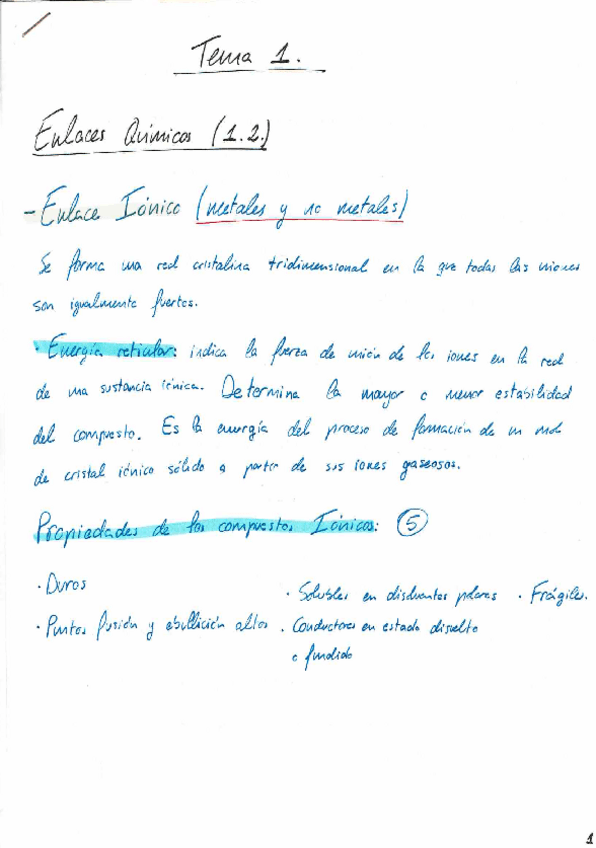 Tema 1.
Enlaces Químicos (1.2.)
- Enlace Iónico (metales y no metales)
Se forma una red cristalina tridimensional en la que todas las uniones
son igualmente fuertes.
· Energía reticular: indica la fuerza de unión de los iones en la red
de una sustancia iónica. Determina la mayor o menor estabilidad
del compuesto. Es la energía del proceso de formación de un mol
de cristal iónico sólido a partir de sus iones gaseosos.
Propiedades de los compuestos Iónicos: 5
· Duros
· Puntos fusión y ebullición altos
· Solubles en disolventes polares · Frágiles.
· Conductores en estado disuelto
o fundido
1